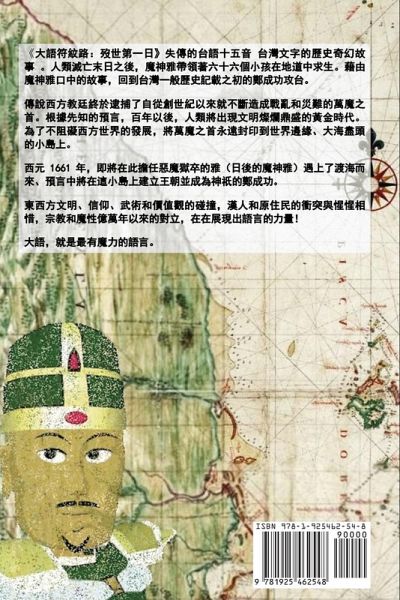 《大語符紋路：歿世第一日》失傳的台語十五音 台灣文字的歷史奇幻故
事 。人類滅亡末日之後，魔神雅帶領著六十六個小孩在地道中求生。藉由
魔神雅口中的故事，回到台灣一般歷史記載之初的鄭成功攻台。
傳說西方教廷終於逮捕了自從創世紀以來就不斷造成戰亂和災難的萬魔之
首。根據先知的預言，百年以後，人類將出現文明燦爛鼎盛的黃金時代。
為了不阻礙西方世界的發展，將萬魔之首永遠封印到世界邊緣、大海盡頭
的小島上。
西元 1661 年，即將在此擔任惡魔獄卒的雅（日後的魔神雅）遇上了渡海而
來、預言中將在這小島上建立王朝並成為神祇的鄭成功。
東西方文明、信仰、武術和價值觀的碰撞，漢人和原住民的衝突與惺惺相
惜，宗教和魔性億萬年以來的對立，在在展現出語言的力量！
大語，就是最有魔力的語言。
ISBN 978-1-925462-54-8
90000
9 781925 462548